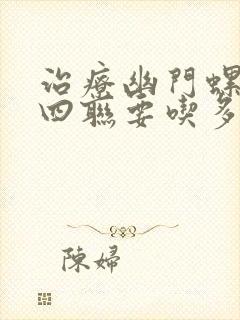 治療幽門螺
四聯要喫多
陳婦